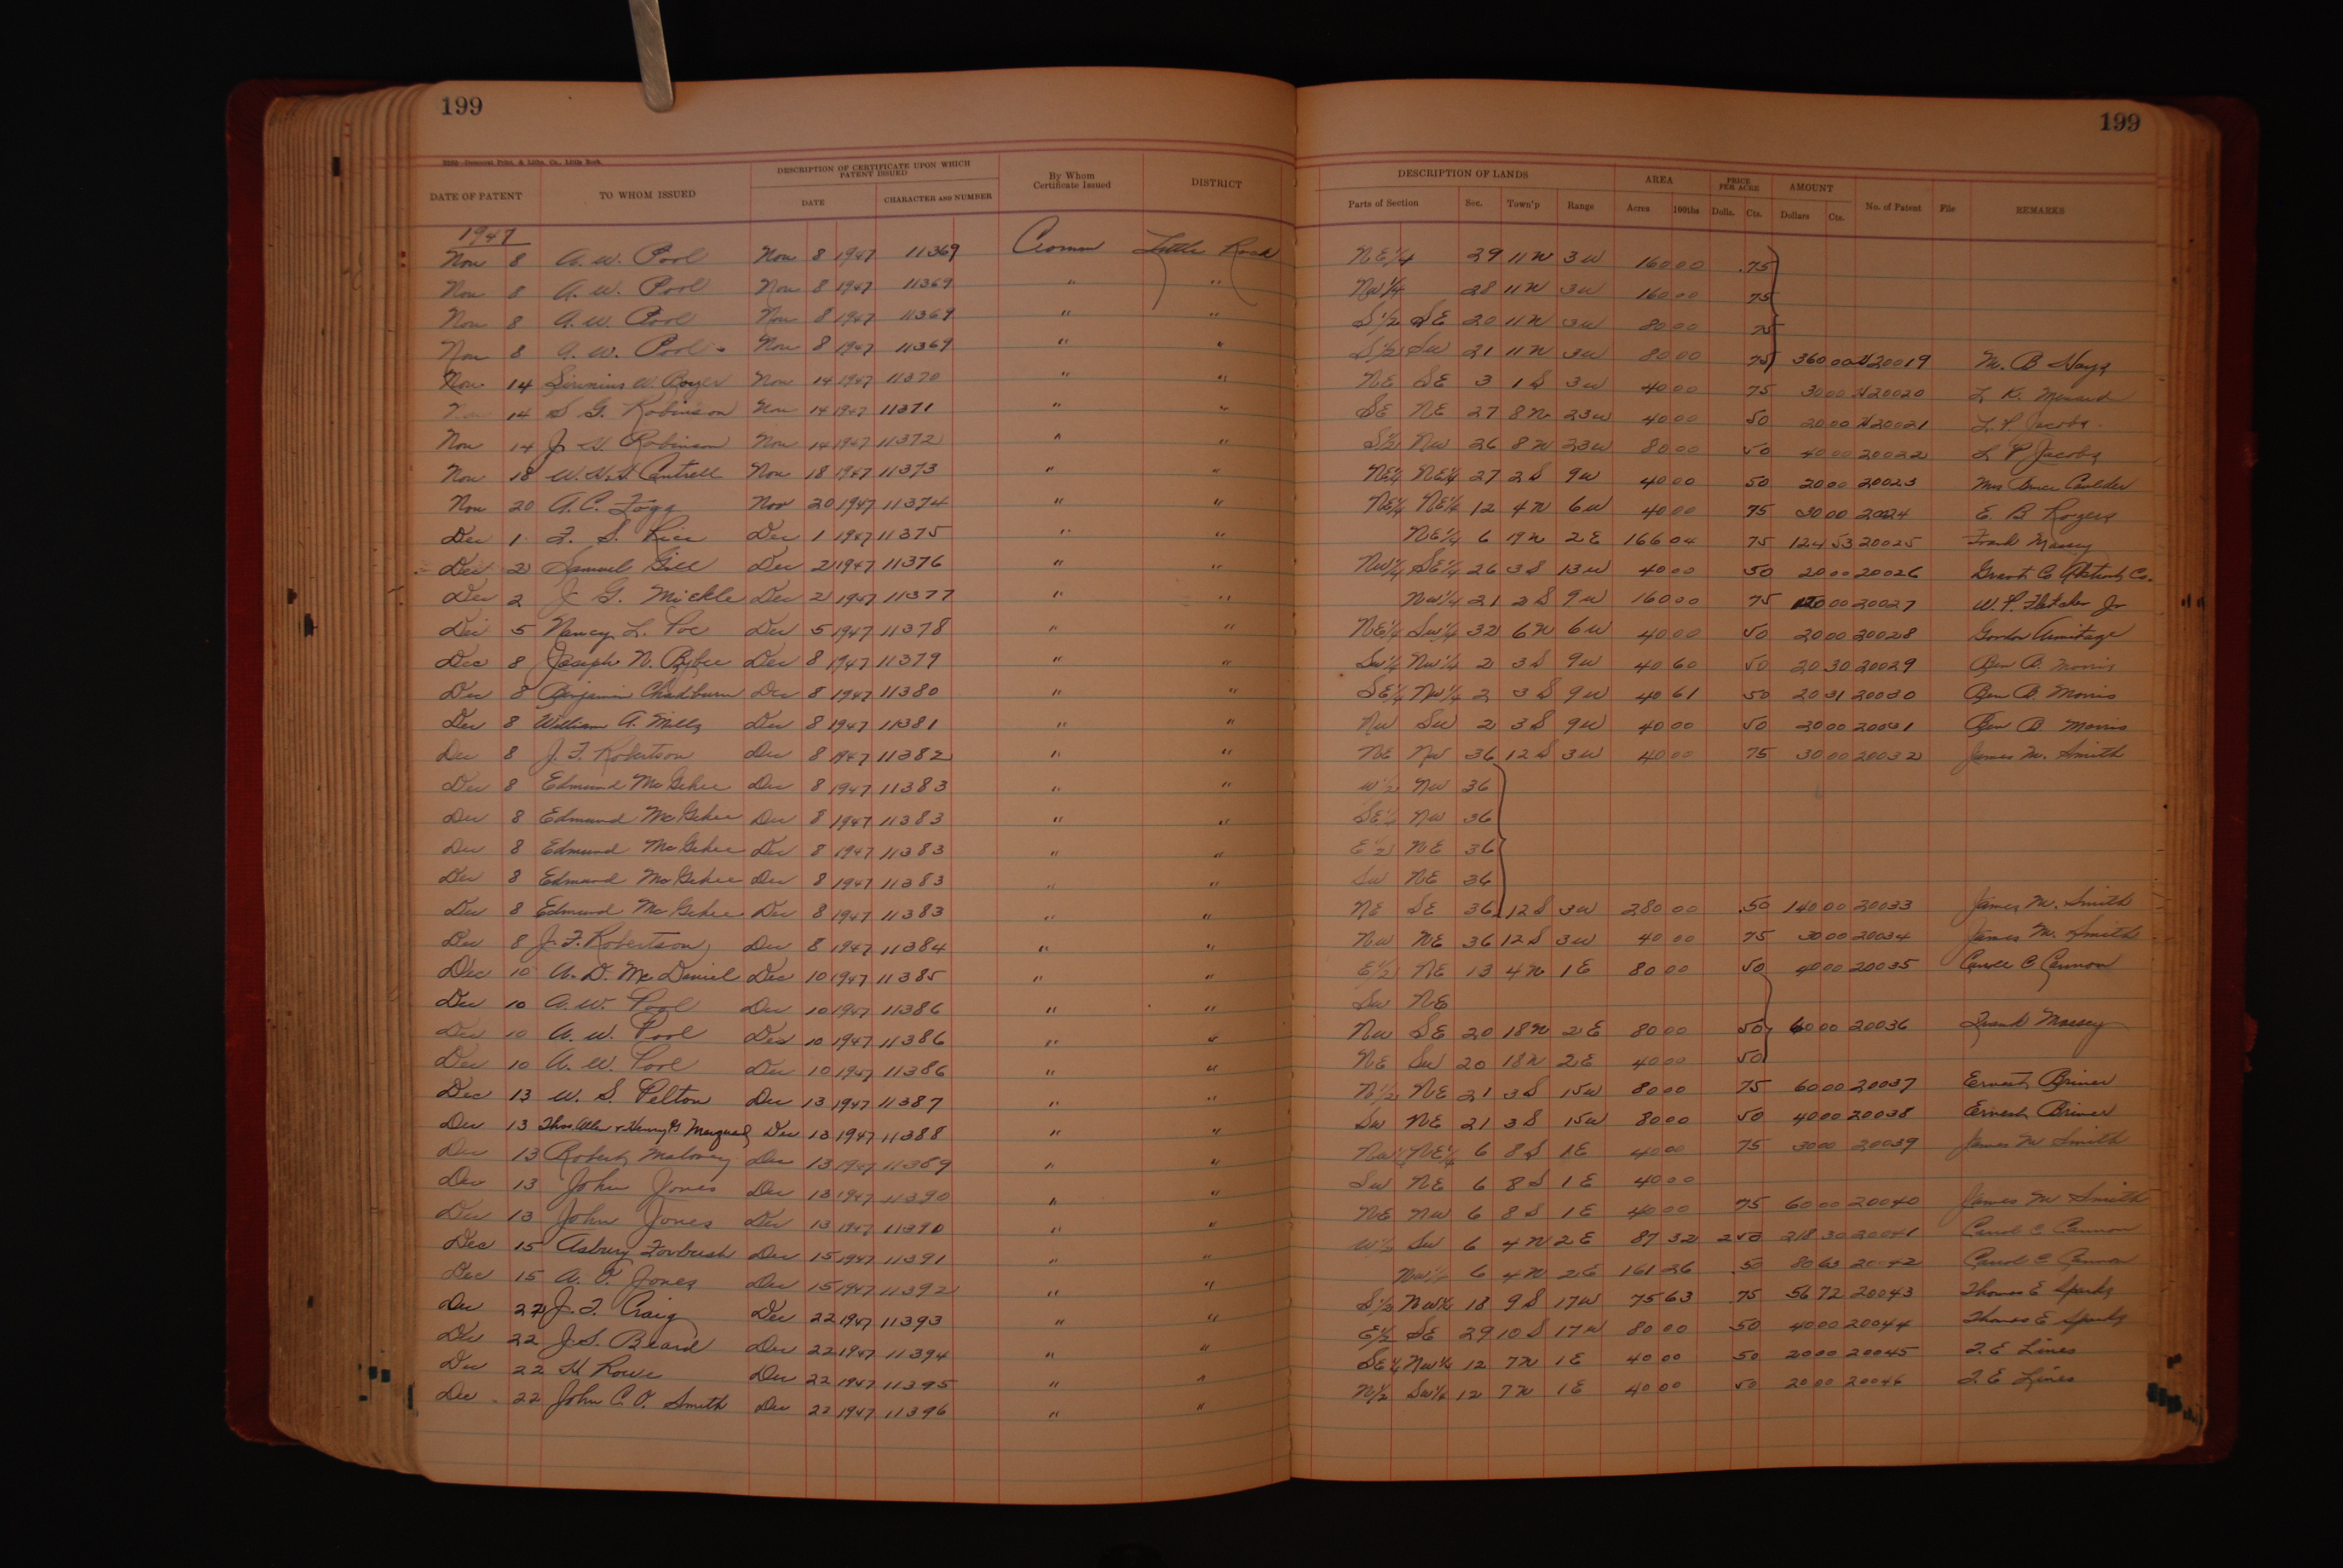 199
199
2202—Democrat Print. & Litho. Co., Little Rock
DATE OF PATENT TO WHOM ISSUED DESCRIPTION OF CERTIFICATE UPON WHICH PATENT ISSUED DATE CHARACTER AND NUMBER By Whom Certificate Issued DISTRICT DESCRIPTION OF LANDS Parts of Section Sec. Town'p Range AREA Acres 100ths PRICE PER ACRE Dolls. Cts. AMOUNT Dollars Cts. No. of Patent File REMARKS
1947
Nov 8 A. W. Pool Nov 8 1947 11369 Comm Little Rock NE 1/4 29 11 N 3 W 160 00 .75
Nov 8 A. W. Pool Nov 8 1947 11369 " " NW 1/4 28 11 N 3 W 160 00 75
Nov 8 A. W. Pool Nov 8 1947 11369 " " S 1/2 SE 20 11 N 3 W 80 00 75
Nov 8 A. W. Pool Nov 8 1947 11369 " " S 1/2 SW 21 11 N 3 W 80 00 75 360 00 20019 M. B. Hays
Nov 14 W. Boyer Nov 14 1947 11370 " " NE SE 3 1 S 3 W 40 00 75 30 00 20020 L. K.
Nov 14 S. G. Robinson Nov 14 1947 11371 " " SE NE 27 8 N 23 W 40 00 50 20 00 20021 L. P. Jacobs
Nov 14 J. H. Robinson Nov 14 1947 11372 " " S 1/2 NW 26 8 N 23 W 80 00 50 40 00 20022 L. P. Jacobs
Nov 18 W. H. H. Cantrell Nov 18 1947 11373 " " NE 1/4 NE 1/4 27 2 S 9 W 40 00 50 20 00 20023 Mrs Caulder
Nov 20 A. C. Fogg Nov 20 1947 11374 " " NE 1/4 NE 1/4 12 4 N 6 W 40 00 75 30 00 20024 E. B. Rogers
Dec 1 F. S. Rice Dec 1 1947 11375 " " NE 1/4 6 19 N 2 E 166 04 75 124 53 20025 Frank Massey
Dec 2 Samuel Gill Dec 2 1947 11376 " " NW 1/4 SE 1/4 26 3 S 13 W 40 00 50 20 00 20026 Grant Co Abstract Co.
Dec 2 J. G. Mickle Dec 2 1947 11377 " " NW 1/4 21 2 S 9 W 160 00 75 120 00 20027 W. P. Fletcher Jr
Dec 5 Nancy L. Poe Dec 5 1947 11378 " " NE 1/4 SW 1/4 32 6 N 6 W 40 00 50 20 00 20028 Gordon Armitage
Dec 8 Joseph N. Bybee Dec 8 1947 11379 " " SW 1/4 NW 1/4 2 3 S 9 W 40 60 50 20 30 20029 Ben B. Morris
Dec 8 Benjamin Chadburn Dec 8 1947 11380 " " SE 1/4 NW 1/4 2 3 S 9 W 40 61 50 20 31 20030 Ben B. Morris
Dec 8 William A. Mills Dec 8 1947 11381 " " NW SW 2 3 S 9 W 40 00 50 20 00 20031 Ben B. Morris
Dec 8 J. F. Robertson Dec 8 1947 11382 " " NE NW 36 12 S 3 W 40 00 75 30 00 20032 James M. Smith
Dec 8 Edmund McGehee Dec 8 1947 11383 " " W 1/2 NW 36
Dec 8 Edmund McGehee Dec 8 1947 11383 " " SE 1/4 NW 36
Dec 8 Edmund McGehee Dec 8 1947 11383 " " E 1/2 NE 36
Dec 8 Edmund McGehee Dec 8 1947 11383 " " SW NE 36
Dec 8 Edmund McGehee Dec 8 1947 11383 " " NE SE 36 12 S 3 W 280 00 .50 140 00 20033 James M. Smith
Dec 8 J. F. Robertson Dec 8 1947 11384 " " NW NE 36 12 S 3 W 40 00 75 30 00 20034 James M. Smith
Dec 10 A. D. McDaniel Dec 10 1947 11385 " " E 1/2 NE 13 4 N 1 E 80 00 50 40 00 20035 Carroll C Cannon
Dec 10 A. W. Pool Dec 10 1947 11386 " " SW NE
Dec 10 A. W. Pool Dec 10 1947 11386 " " NW SE 20 18 N 2 E 80 00 50 60 00 20036 Frank Massey
Dec 10 A. W. Pool Dec 10 1947 11386 " " NE SW 20 18 N 2 E 40 00 50
Dec 13 W. S. Pelton Dec 13 1947 11387 " " N 1/2 NE 21 3 S 15 W 80 00 75 60 00 20037 Ernest Briner
Dec 13 Thos Allen & Henry G Marquand Dec 13 1947 11388 " " SW NE 21 3 S 15 W 80 00 50 40 00 20038 Ernest Briner
Dec 13 Robert Maloney Dec 13 1947 11389 " " NW 1/4 NE 1/4 6 8 S 1 E 40 00 75 30 00 20039 James M Smith
Dec 13 John Jones Dec 13 1947 11390 " " SW NE 6 8 S 1 E 40 00
Dec 13 John Jones Dec 13 1947 11390 " " NE NW 6 8 S 1 E 40 00 75 60 00 20040 James M Smith
Dec 15 Asbury Forbush Dec 15 1947 11391 " " W 1/2 SW 6 4 N 2 E 87 32 2 50 218 30 20041 Carrol C Cannon
Dec 15 A. F. Jones Dec 15 1947 11392 " " NW 1/4 6 4 N 2 E 161 26 .50 80 63 20042 Carrol C Cannon
Dec 22 J. F. Craig Dec 22 1947 11393 " " S 1/2 NW 1/4 18 9 S 17 W 75 63 .75 56 72 20043 Thomas E Sparks
Dec 22 J. S. Beard Dec 22 1947 11394 " " E 1/2 SE 29 10 S 17 W 80 00 .50 40 00 20044 Thomas E Sparks
Dec 22 H. Rowe Dec 22 1947 11395 " " SE 1/4 NW 1/4 12 7 N 1 E 40 00 50 20 00 20045 F. E Lines
Dec 22 John C. O. Smith Dec 22 1947 11396 " " N 1/2 SW 1/4 12 7 N 1 E 40 00 50 20 00 20046 F. E Lines